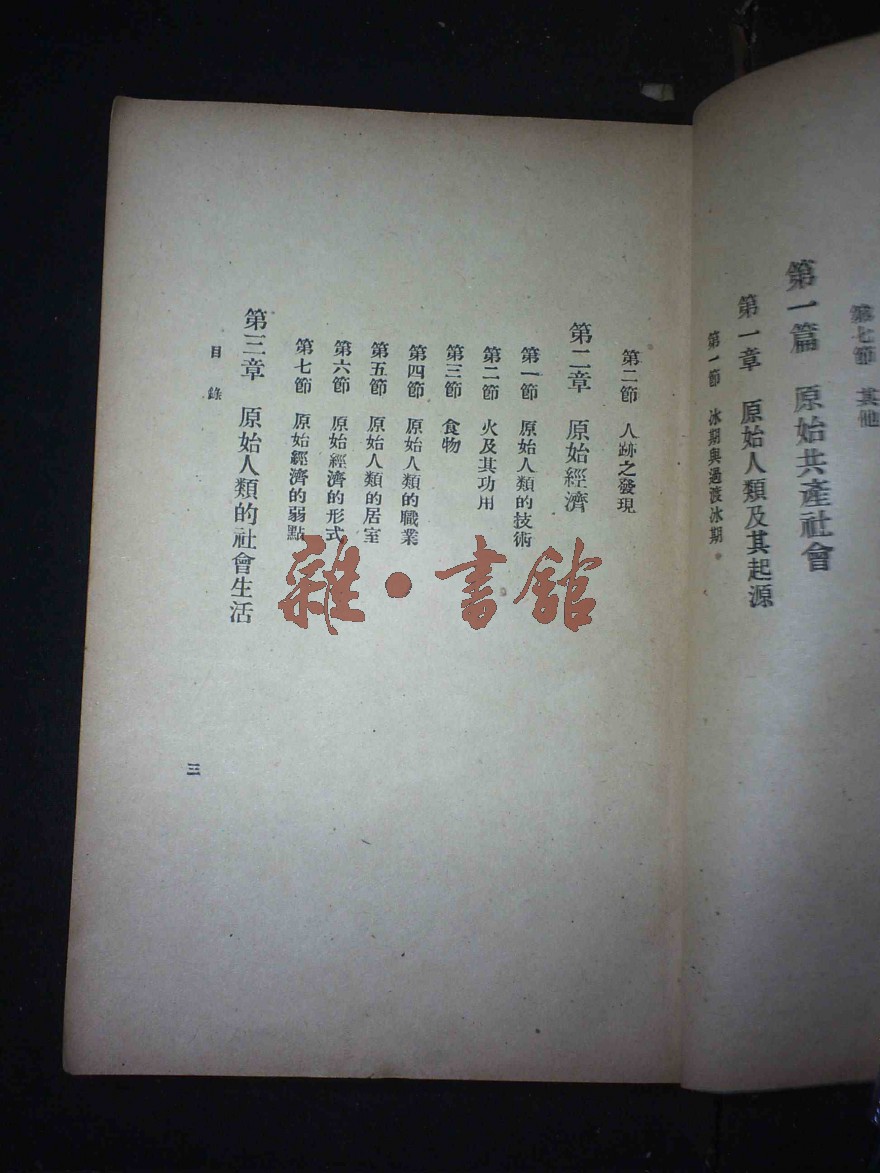 第七節 其他
第一篇 原始共產社會
第一章 原始人類及其起源
第一節 冰期與過渡冰期
第二節 人跡之發現
第二章 原始經濟
第一節 原始人類的技術
第二節 火及其功用
第三節 食物
第四節 原始人類的職業
第五節 原始人類的居室
第六節 原始經濟的形式
第七節 原始經濟的弱點
第三章 原始人類的社會生活
目錄
三
雜·書館